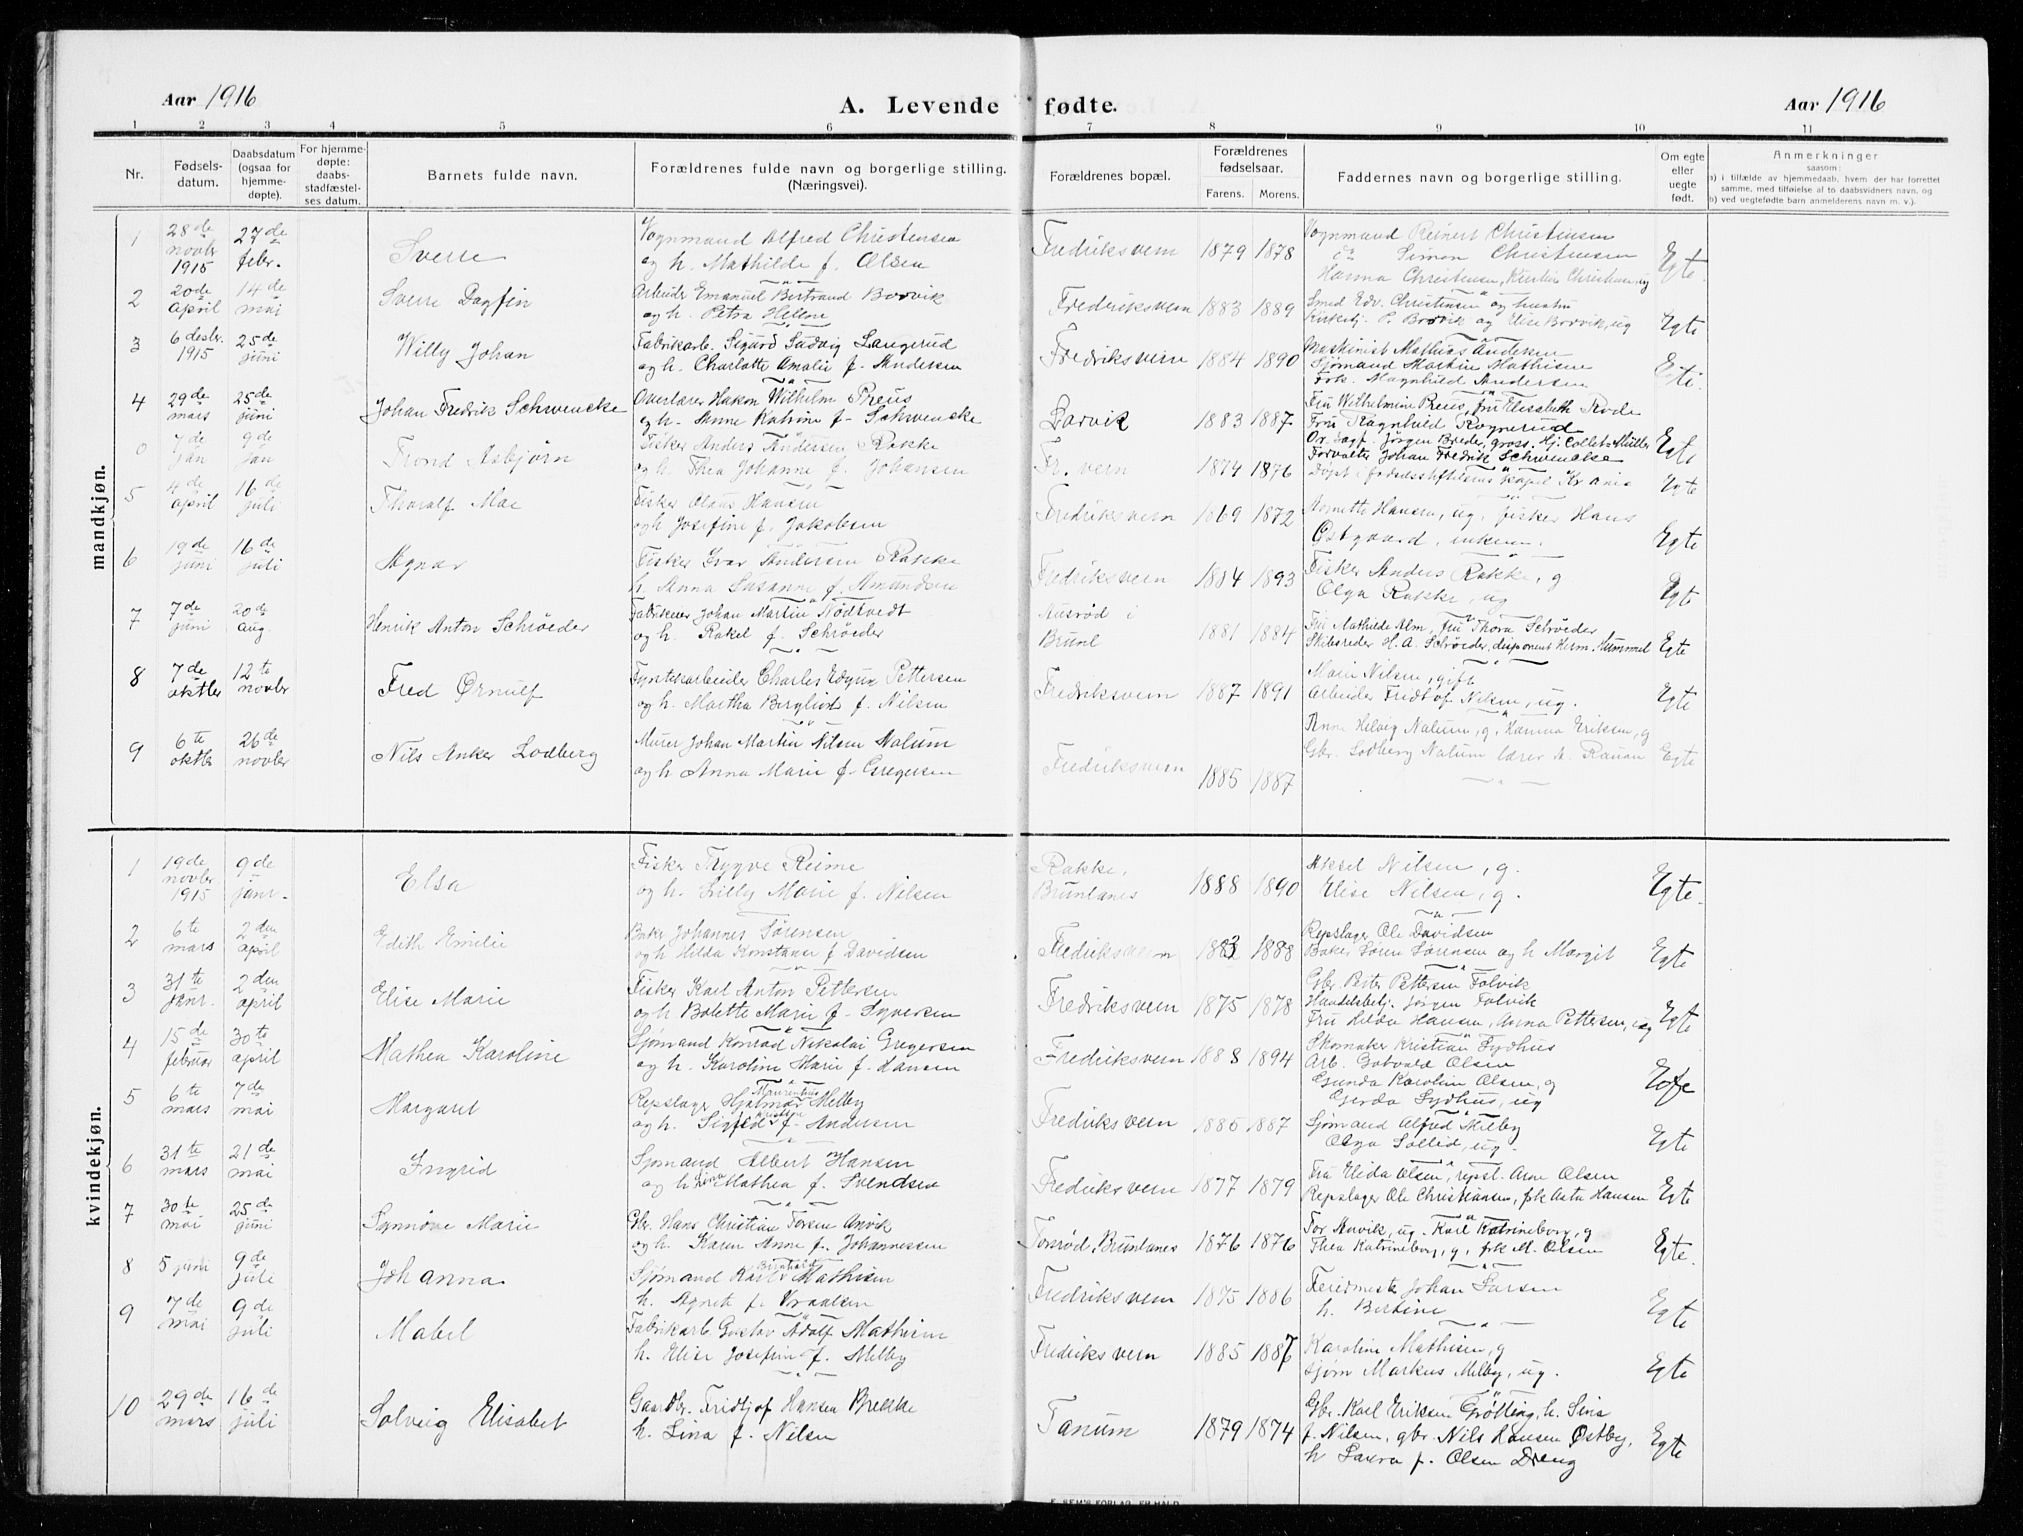 Aar 1916
A. Levende fødte.
Aar 1916
1 2 3 4 5 6 7 8 9 10 11
Nr.
Fødsels-
datum.
Daabsdatum
(ogsaa for
hjemme-
døpte).
For hjemme-
døpte:
daabs-
stadfæstel-
ses datum.
Barnets fulde navn.
Forældrenes fulde navn og borgerlige stilling.
(Næringsvei).
Forældrenes bopæl.
Forældrenes
fødselsaar.
Farens. Morens.
Faddernes navn og borgerlige stilling.
Om egte
eller
uegte
født.
Anmerkninger
saasom:
a) i tilfælde av hjemmedaab, hvem der har forrettet
samme, med tilføielse af to daabsvidners navn, og
b) ved uegtefødte barn anmelderens navn m. v.).
mandkjøn.
1 28de novbr 1915 27de febr. Sverre
Vognmand Alfred Christensen
og h. Mathilde f. Olsen
Fredriksvern 1879 1878
Vognmand Reinert Christensen
do Simon Christensen
Hanna Christensen, Kirstin Christensen, ug
Egte
2 20de april 14de mai Sverre Dagfin
Arbeider Emanuel Bertrand Borvik
og h. Petra Helene
Fredriksvern 1883 1889
Smed Edv. Christensen og hustru
Kirketj. P. Borvik og Elise Borvik, ug
Egte
3 6 desbr. 1915 25de juni Willy Johan
Fabrikarb. Sigurd Ludvig Langerud
og h. Charlotte Amalie f. Andersen
Fredriksvern 1884 1890
Maskinist Mathias Andersen
Sjømand Martin Mathisen
Frk. Magnhild Andersen
Egte
4 29de mars 25de juni Johan Fredrik Schwencke
Overlærer Hakon Wilhelm Preus
og h. Anne Katrine f. Schwencke
Larvik 1883 1887
Fru Wilhelmine Preus, fru Elisabeth Rode
Fru Ragnhild Rognerud
Or. sagf. Jørgen Breder, gross. Hj. Collet-Müller
Forvalter Johan Fredrik Schwencke
Egte
0 7de jan 9de jan Trond Asbjørn
Fisker Anders Andersen Rakke
og h. Thea Johanne f. Johansen
Fr. vern 1874 1876
Døpt i fødselsstiftelsens kapel Kr ania
Egte
5 4de april 16de juli Thoralf Mae
Fisker Olaus Hansen
og h Josefine f. Jakobsen
Fredriksvern 1869 1872
Annette Hansen, ug, fisker Hans
Østgaard, enkem.
Egte
6 19de juni 16de juli Agnar
Fisker Ivar Andersen Rakke
h. Anna Susanne f. Amundsen
Fredriksvern 1884 1893
Fisker Anders Rakke, g
Olga Rakke, ug
Egte
7 7de juni 20de aug. Henrik Anton Schrøeder
Fabrikeier Johan Martin Nödtvedt
og h. Rakel f. Schrøeder
i
Brunl 1881 1884
Fru Mathilde Alm, fru Thora Schrøeder
Skibsreder H. A. Schrøder, disponent Herm. Hummel
Egte
8 7de oktbr 12te novbr Fred Ørnulf
Fyntekarbeider Charles Edgun Pettersen
og h. Martha Bergliot f. Nilsen
Fredriksvern 1887 1891
Marie Nilsen, gift
Arbeider Fridtjof Nilsen, ug.
Egte
9 6te oktbr 26de novbr Nils Anker Lodberg
Murer Johan Martin Nilsen Nalum
og h Anna Marie f. Gregersen
Fredriksvern 1885 1887
Anne Helvig Nalum, g, Hanna Eriksen, g
Gbr. Lodberg Nalum lærer A. Rauan
Egte
kvindekjøn.
1 19de novbr. 1915 9de janr. Elsa
Fisker Trygve Reime
og h. Lilly Marie f. Nilsen
Rakke,
Brunlanes 1888 1890
Aksel Nilsen, g.
Elise Nilsen, g.
Egte.
2 6te mars 2den april Edith Emilie
Baker Johannes Sørensen
og h Hilda Konstanse f Davidsen
Fredriksvern 1883 1888
Repslager Ole Davidsen
Baker Søren Sørensen og h Margit
Egte
3 31te janr. 2den april Elise Marie
Fisker Karl Anton Pettersen
og h Bolette Marie f. Syversen
Fredriksvern 1875 1878
Gbr. Peter Pettersen Folvik
Handelsbetj. Jørgen Folvik
Fru Hilda Hansen, Anna Pettersen, ug
Egte
4 15de februar 30te april Mathea Karoline
Sjømand Konrad Nikolai Gregersen
og h. Karoline Marie f. Hansen
Fredriksvern 1888 1894
Skomaker Kristian Sydhus
Arb. Gotvald Olsen
Gunda Karoline Olsen, g
Gerda Sydhus, ug
Egte
5 6te mars 7de mai Margaret
Repslager Hjalmar Maurentius Melby
og h. Sigfrid Kristine f. Andersen
Fredriksvern 1885 1887
Sjømand Alfred Melby
Olga Sollid, ug.
Egte
6 31te mars 21de mai Ingrid
Sjømand Albert Hansen
og h. Lina Mathea f. Svendsen
Fredriksvern 1877 1879
Fru Elida Olsen, repsl. Arne Olsen
Repslager Ole Christiansen, frk Asta Hansen
Egte
7 30te mai 25de juni Synnøve Marie
Gbr. Hans Christian Torsen Anvik
og h. Karen Anne f. Johannessen
Torsrød, Brunlanes 1876 1876
Tor Anvik, ug. Karl Katrineborg, g
Thea Katrineborg, g, frk M. Olsen
Egte.
8 5 juni 9de juli Johanna
Sjømand Karl Bernhard Mathisen
h. Agnete f. Vraalsen
Fredriksvern 1875 1886
Feiermester Johan Larsen
h. Bertine
Egte
9 7de mai 9de juli Mabel
Fabrikarb. Gustav Adolf Mathisen
h. Elise Josefine f. Melby
Fredriksvern 1885 1887
Karoline Mathisen, g
sjøm Markus Melby, ug.
Egte
10 29de mars 16de juli Solveig Elisabet
Gaardbr. Fridtjof Hansen Brekke
h. Lina f. Nilsen
Tanum 1879 1874
Gbr. Karl Eriksen Grøtting, h. Sina
f. Nilsen, gbr. Nils Hansen Østby,
h Laura f. Olsen Dreng
Egte
E. SEM'S FORLAG, FR.HALD